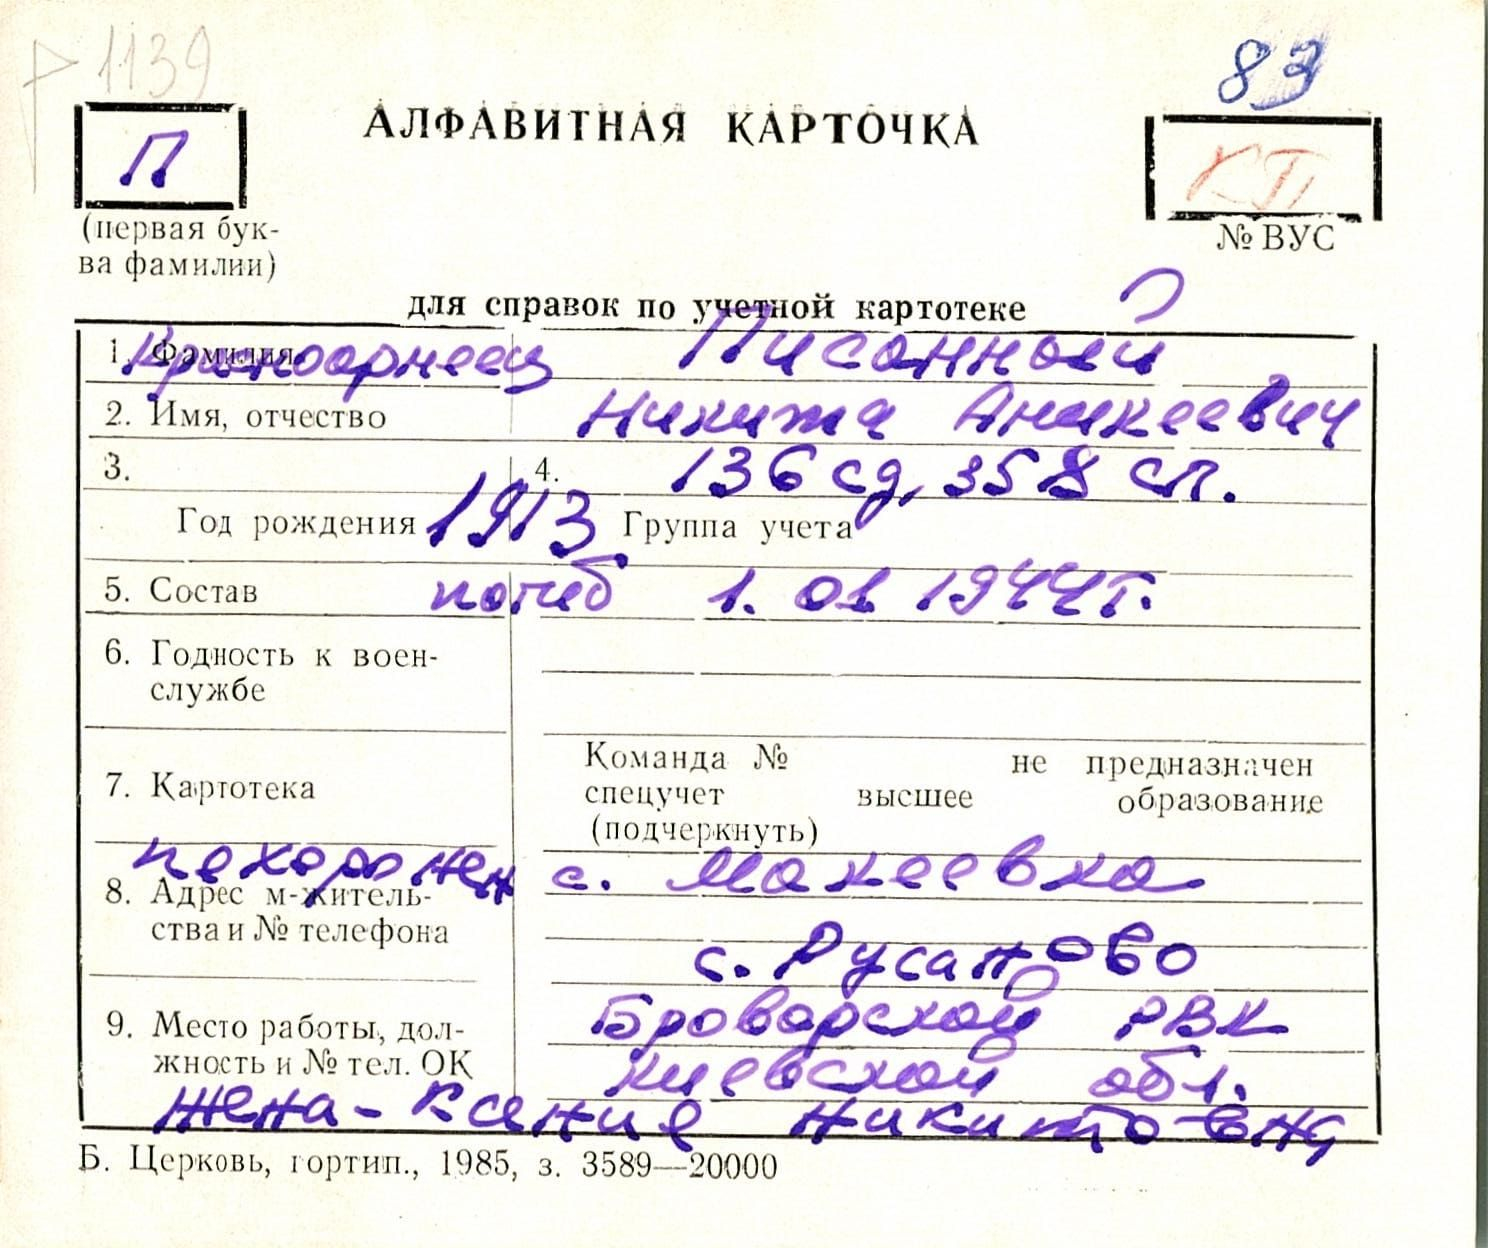 1139
83
АЛФАВИТНАЯ КАРТОЧКА
П
КП
(первая бук-
ва фамилии)
№ ВУС
для справок по учетной картотеке
1. Фамилия
Красноармеец Писанный
2. Имя, отчество Никита Аникеевич
3. 4. 136 сд, 358 сп.
Год рождения 1913 Группа учета
5. Состав погиб 1. 01 1944 г.
6. Годность к воен-
службе
Команда № не предназначен
7. Картотека спецучет высшее образование
(подчеркнуть)
похоронен с. Макеевка
8. Адрес м-житель-
ства и № телефона
с. Русаново
Броварской РВК
9. Место работы, дол-
жность и № тел. ОК
Киевской обл.
жена - Ксения Никитовна
Б. Церковь, гортип., 1985, з. 3589—20000